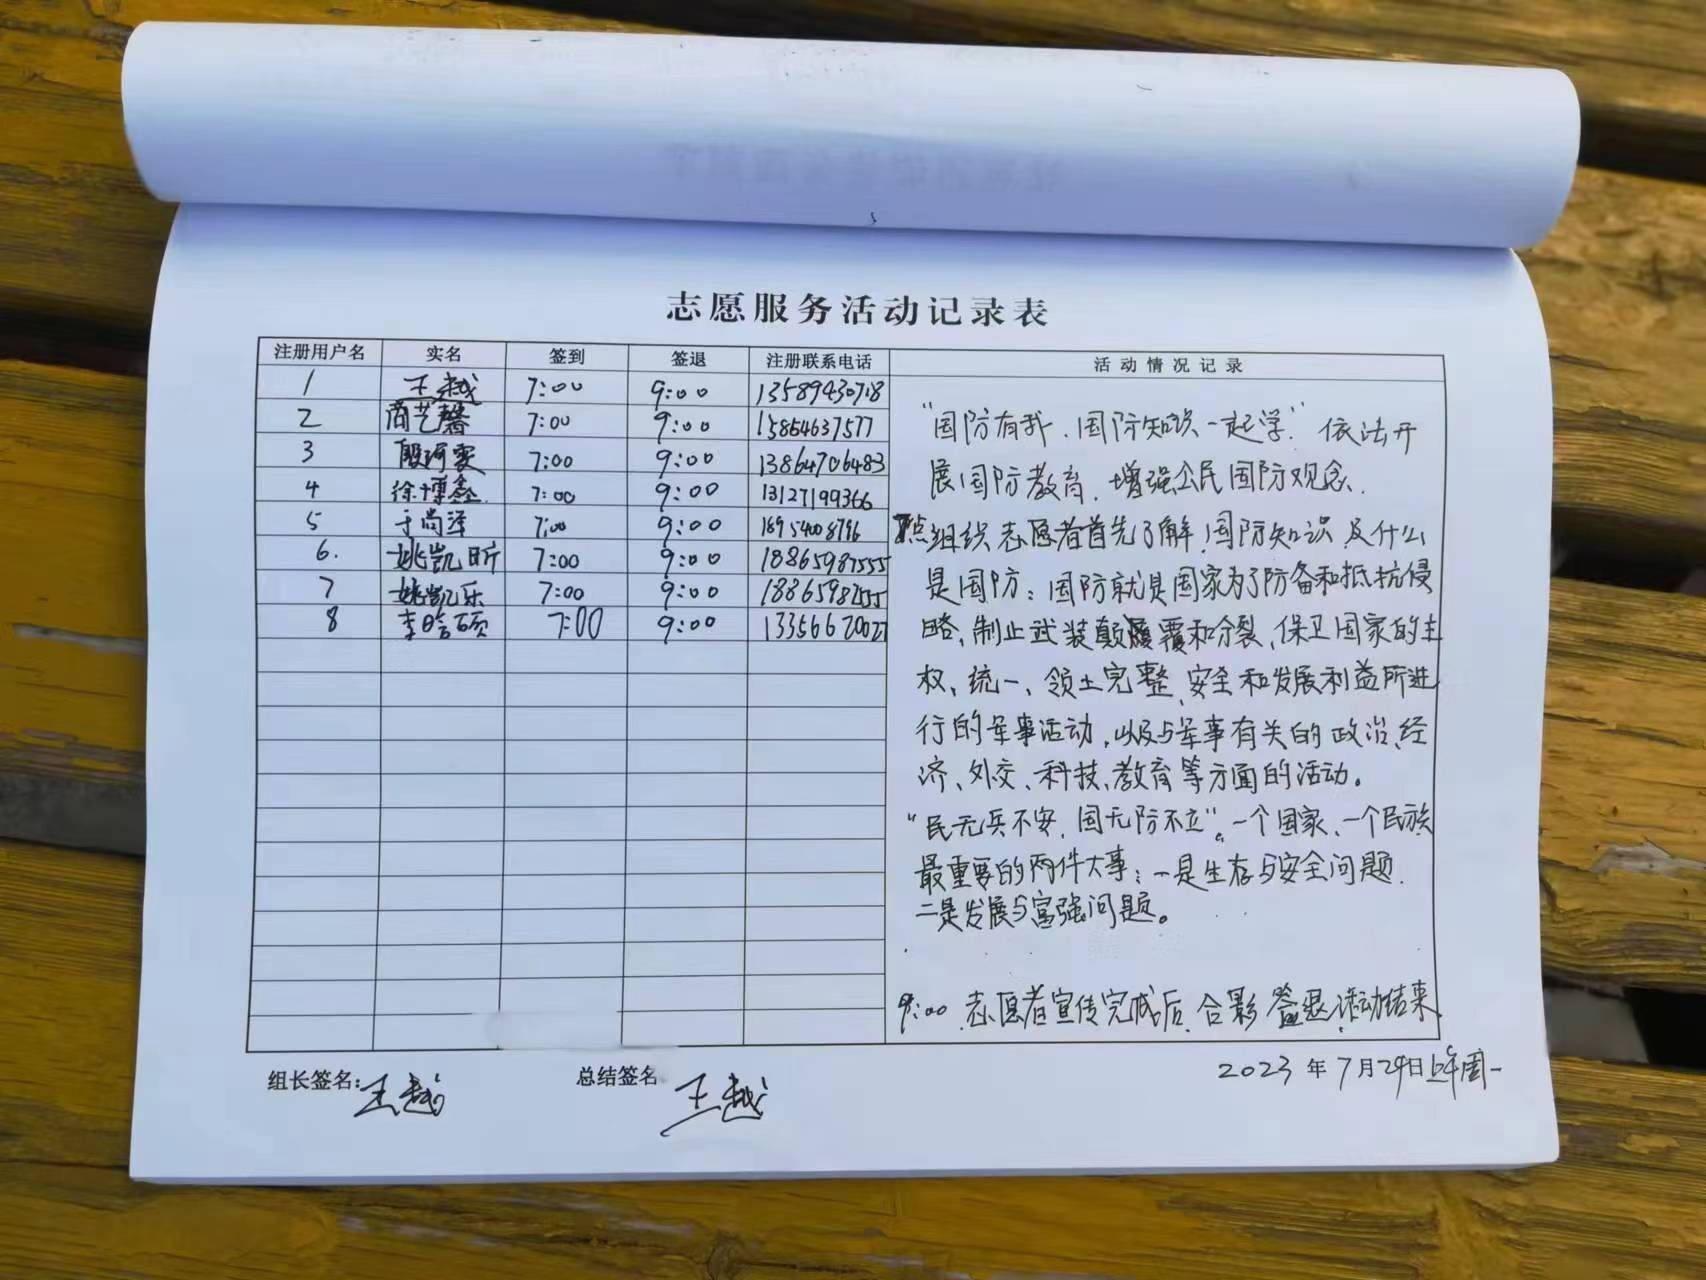 志愿服务活动记录表
注册用户名 实名 签到 签退 注册联系电话 活动情况记录
1 王越 7:00 9:00 13589430718
2 商艺馨 7:00 9:00 15864637577
3 殷 7:00 9:00 13864706483
4 徐博鑫 7:00 9:00 13127199366
5 于尚泽 7:00 9:00 16954008796
6. 姚凯昕 7:00 9:00 18865987555
7 姚凯乐 7:00 9:00 18865987555
8 李晗硕 7:00 9:00
“国防有我、国防知识一起学”依法开
展国防教育,增强公民国防观念.
7点组织志愿者首先了解国防知识及什么
是国防:国防就是国家为了防备和抵抗侵
略,制止武装颠覆和分裂,保卫国家的主
权、统一、领土完整,安全和发展利益所进
行的军事活动,以及与军事有关的政治、经
济、外交、科技、教育等方面的活动。
“民无兵不安,国无防不立”。一个国家、一个民族
最重要的两件大事:一是生存与安全问题.
二是发展与富强问题。
9:00 志愿者宣传完成后,合影 签退 活动结束
组长签名:王越 总结签名 王越
2023 年 7月24日 上午周一